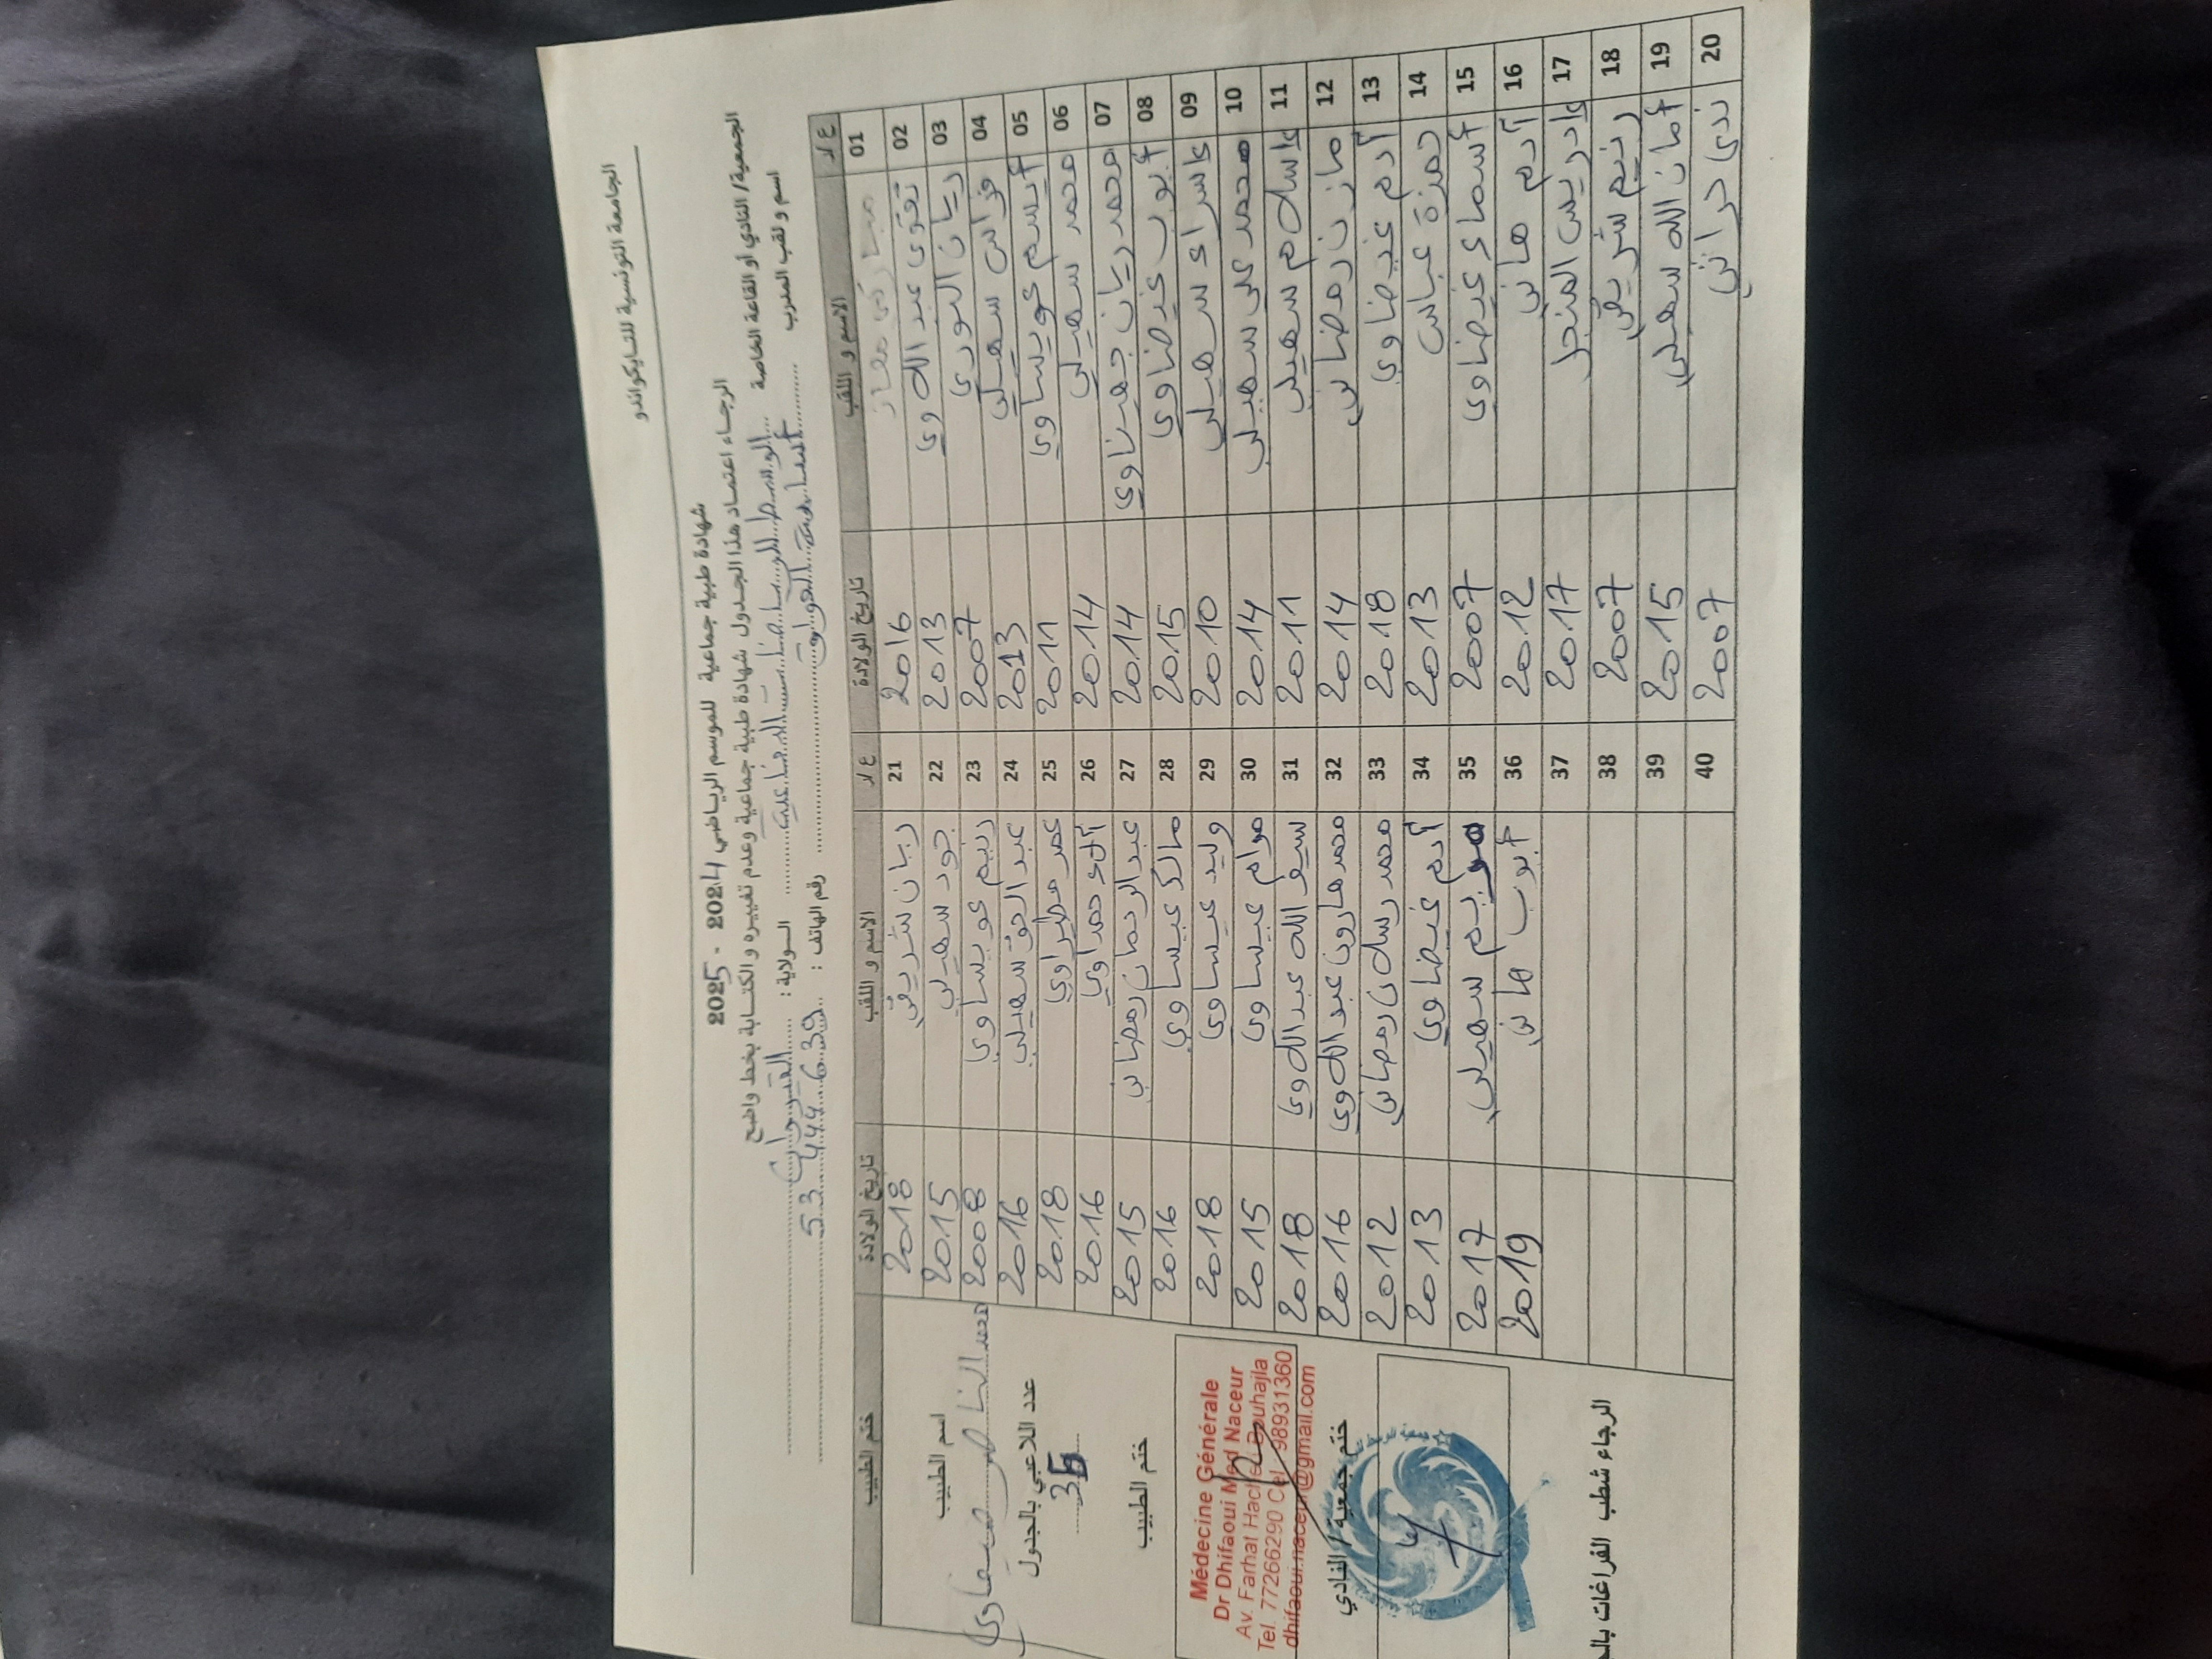 الجامعة التونسية للتايكواندو
شهادة طبية جماعية للموسم الرياضي 2024 - 2025
الرجاء اعتماد هذا الجدول شهادة طبية جماعية وعدم تغييره والكتابة بخط واضح
الجمعية/ النادي أو القاعة الخاصة الولاية : القيروان
اسم و لقب المدرب رقم الهاتف : 53 444 639
ع/د الاسم و اللقب تاريخ الولادة ع/د الاسم و اللقب تاريخ الولادة ختم الطبيب
01 2016 21 ريان شريفي 2018
02 تقوى عبد اللاوي 2013 22 جود سهيلي 2015
03 ريان النوري 2007 23 عويساوي 2008
04 فراس سهيلي 2013 24 عبد الحق سهيلي 2016
05 عويساوي 2011 25 عمر مطيراوي 2018
06 محمد سهيلي 2014 26 آلاء حمداوي 2016
07 محمد ريان جهيناوي 2014 27 عبد الرحمان رمضاني 2015
08 أيوب غيضاوي 2015 28 مالك عيساوي 2016
09 إسراء سهيلي 2010 29 وليد عيساوي 2018
10 محمد علي سهيلي 2014 30 مرام عيساوي 2015
11 إسلام سهيلي 2011 31 سيف الله عبد اللاوي 2018
12 مازن رمضاني 2014 32 محمد هارون عبد اللاوي 2016
13 آدم غيضاوي 2018 33 محمد رسلان رمضاني 2012
14 حمزة عباس 2013 34 آدم غيضاوي 2013
15 أسماء غيضاوي 2007 35 مريم سهيلي 2017
16 آدم هاني 2012 36 أيوب هاني 2019
17 إدريس المنجل 2017 37
18 رنيم شريفي 2007 38
19 أمان الله سهيلي 2015 39
20 ندى حراثي 2007 40
اسم الطبيب
محمد الناصر ضيفاوي
عدد اللاعبي بالجدول
ختم الطبيب
Médecine Générale
Dr Dhifaoui Med Naceur
Av. Farhat Hached Bouhajla
Tel. 77266290 Cel. 98931360
dhifaoui.naceur@gmail.com
ختم جمعية / النادي
الرجاء شطب الفراغات